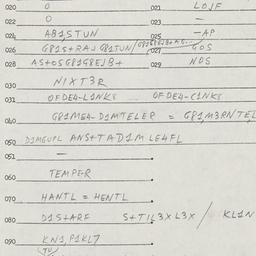 020 0 021 LOJF
022 0 023 –
024 AB1STUN 025 –AP
026 G81S+RAJ G81TUN/ 027 GOS
028 AS+OSG81G8EJB+ 029 NOS
030 NIXT3R
031 OFDE4-L1NKS OFDE4-C1NKS
040 G81ME4-D1MTELER = G81M3RNTEL
050 D1MGUPL ANSTAD1MLE4FL
051 –
060 TEMPER
070 HANTL = HENTL
080 D1S+ARF S+T1L3XL3X / KL1N
090 KN1,P1KL7